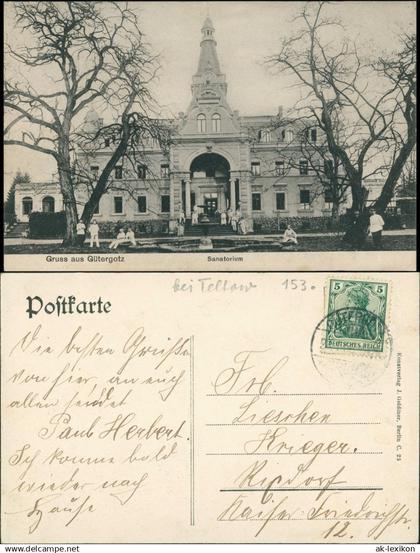 Gruss aus Gütergotz
Sanatorium
bei Teltow 153.
Postkarte
5 5
DEUTSCHES REICH
Die besten Grüsse
von hier, an euch
allen sendet
Paul Herbert.
Ich komme bald
wieder nach
Hause
Frl.
Lieschen
Krieger.
Rixdorf
Kaiser Friedrichstr.
12.
Kunstverlag J. Goldiner, Berlin C. 25
www.ak-ansichtskarten.de
© ak-lexikon